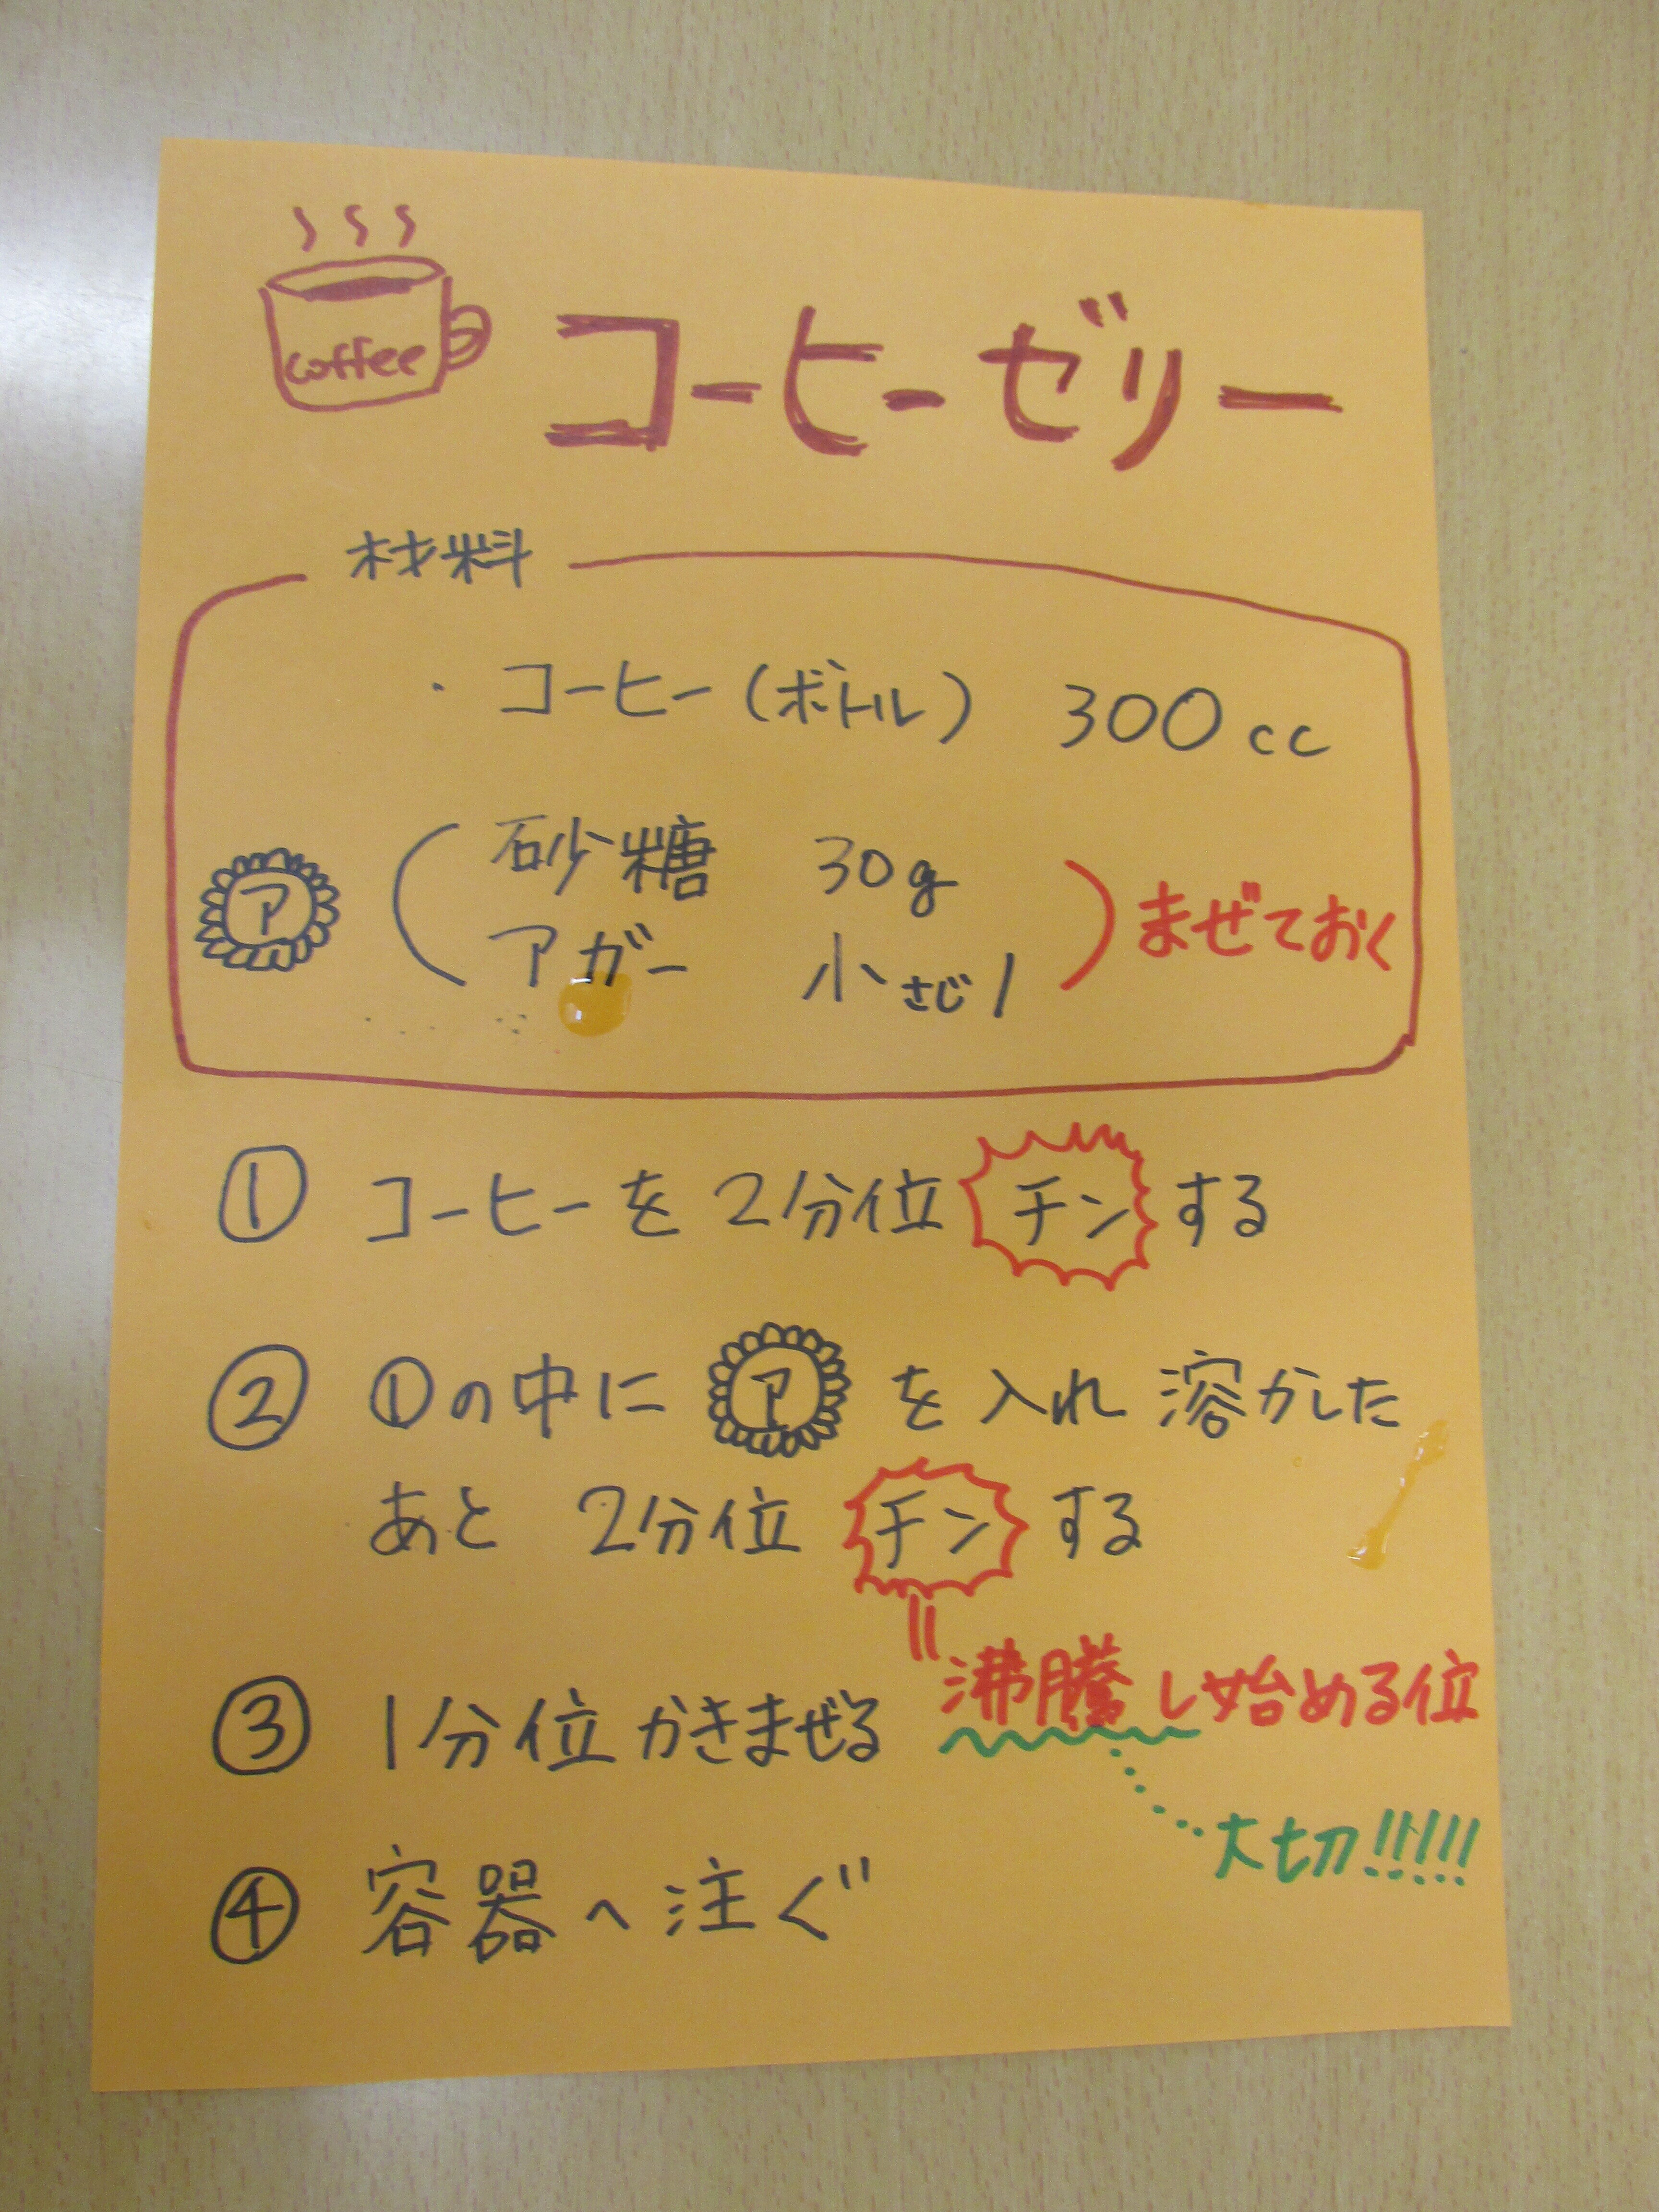 coffee
コーヒーゼリー
材料
・コーヒー(ボトル) 300cc
ア (砂糖 30g
アガー 小さじ1) まぜておく
① コーヒーを2分位チンする
② ①の中にアを入れ溶かした
あと 2分位チンする
=沸騰し始める位
③ 1分位かきまぜる
大切!!!!!
④ 容器へ注ぐ